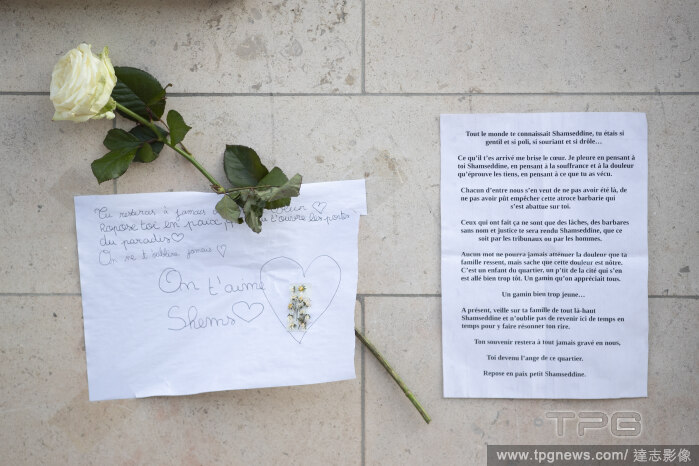 Tu resteras à jamais
Repose toi en paix
t'ouvre les portes
du paradis
On ne t'oublira jamais
On t'aime
Shems
Tout le monde te connaissait Shamseddine, tu étais si
gentil et si poli, si souriant et si drôle…
Ce qu'il t'es arrivé me brise le cœur. Je pleure en pensant à
toi Shamseddine, en pensant à la souffrance et à la douleur
qu'éprouve les tiens, en pensant à ce que tu as vécu.
Chacun d'entre nous s'en veut de ne pas avoir été là, de
ne pas avoir pût empêcher cette atroce barbarie qui
s'est abattue sur toi.
Ceux qui ont fait ça ne sont que des lâches, des barbares
sans nom et justice te sera rendu Shamseddine, que ce
soit par les tribunaux ou par les hommes.
Aucun mot ne pourra jamais atténuer la douleur que ta
famille ressent, mais sache que cette douleur est nôtre.
C'est un enfant du quartier, un p'tit de la cité qui s'en
est allé bien trop tôt. Un gamin qu'on appréciait tous.
Un gamin bien trop jeune…
A présent, veille sur ta famille de tout là-haut
Shamseddine et n'oublie pas de revenir ici de temps en
temps pour y faire résonner ton rire.
Ton souvenir restera à tout jamais gravé en nous.
Toi devenu l'ange de ce quartier.
Repose en paix petit Shamseddine.
TPG
www.tpgnews.com/ 達志影像